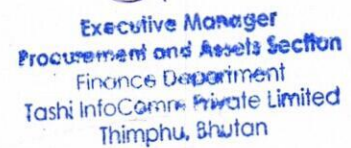 Executive Manager
Procurement and Assets Section
Finance Department
Tashi InfoComm Private Limited
Thimphu, Bhutan